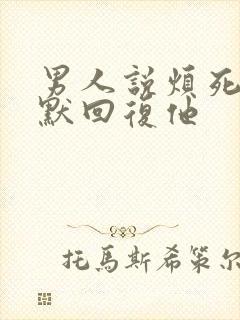 男人説煩死
默回復他
托馬斯希策尔